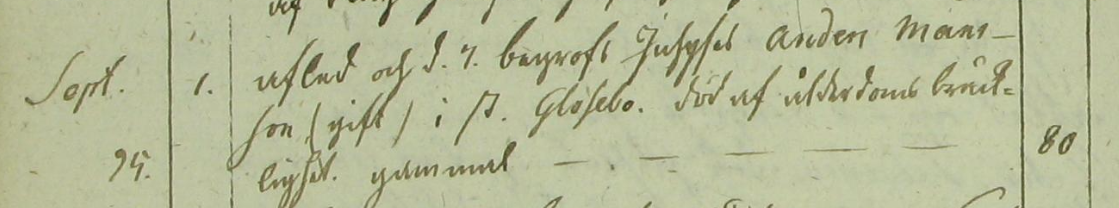 Sept. 1. afled och d. 7. begrofs Anden Måns-
son (gift) i St. Glösebo. död af ålderdoms bräck-
95. lighet. gammal — — — — — 80